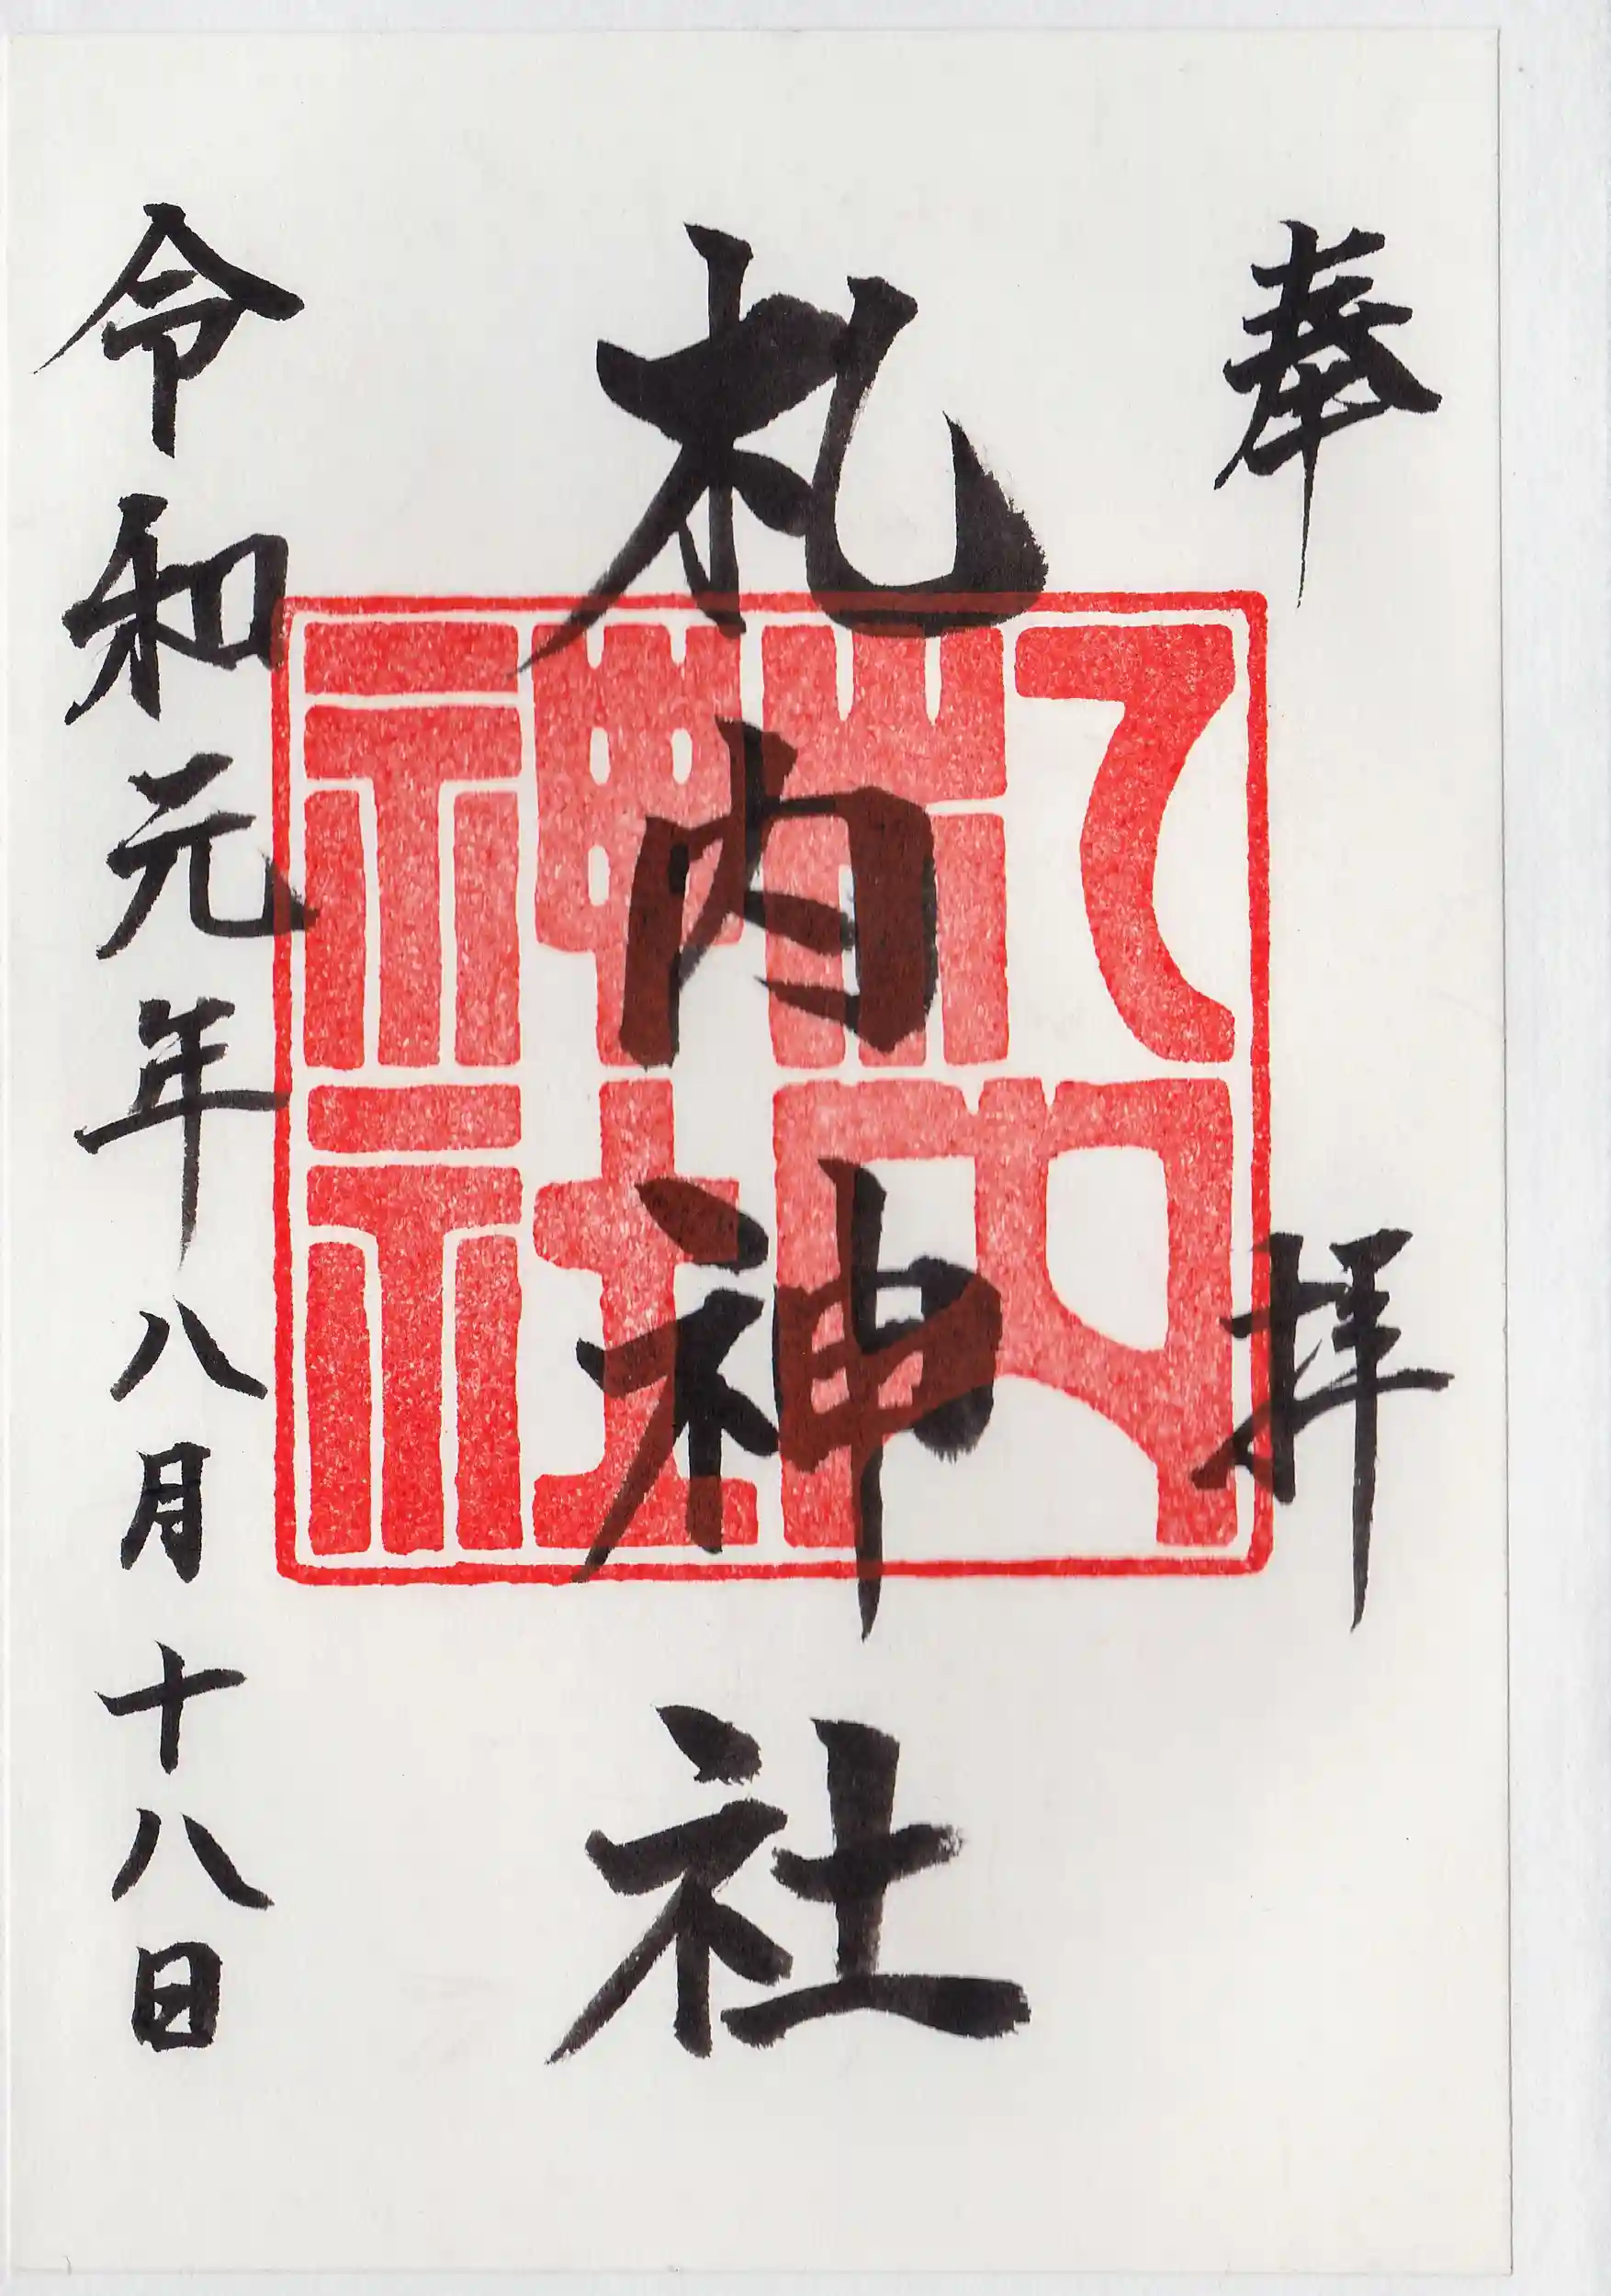 奉拝
札内神社
令和元年八月十八日
札内神社